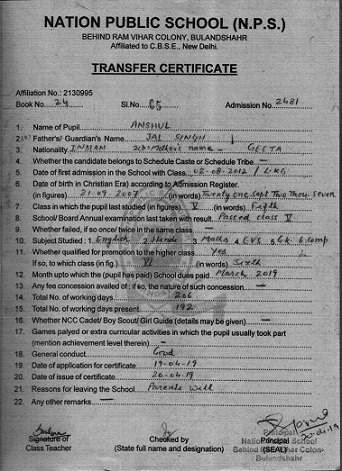 NATION PUBLIC SCHOOL (N.P.S.)
BEHIND RAM VIHAR COLONY, BULANDSHAHR
Affiliated to C.B.S.E., New Delhi.
TRANSFER CERTIFICATE
Affiliation No.: 2130995
Book No. 24 Sl.No. 65 Admission No. 2481
1. Name of Pupil ANSHUL
2. Father's/ Guardian's Name JAI SINGH
3. Nationality INDIAN Mother's name - GEETA
4. Whether the candidate belongs to Schedule Caste or Schedule Tribe —
5. Date of first admission in the School with Class. 02-08-2012 / LKG
6. Date of birth in Christian Era) according to Admission Register.
(in figures) 21.09.2007 (in words) Twenty one Sept Two Thou. Seven
7. Class in which the pupil last studied (in figures) V (in words) Fifth
8. School/ Board Annual examination last taken with result. Passed class V
9. Whether failed, if so once/ twice in the same class —
10. Subject Studied : 1. English 2. Hindi 3. Maths 4. EVS 5. GK 6. Comp
11. Whether qualified for promotion to the higher class. Yes
If so, to which class (in fig.) VI (in words) Sixth
12. Month upto which the (pupil has paid) School dues paid March 2019
13. Any fee concession availed of : if so, the nature of such concession —
14. Total No. of working days. 206
15. Total No. of working days present. 192
16. Whether NCC Cadet/ Boy Scout/ Girl Guide (details may be given) —
17. Games palyed or extra curricular activities in which the pupil usually took part
(mention achievement level therein) —
18. General conduct. Good
19. Date of application for certificate 19-04-19
20. Date of issue of certificate. 20-04-19
21. Reasons for leaving the School Parents Will
22. Any other remarks —
Signature of
Class Teacher
Checked by
(State full name and designation)
Principal
(SEAL)
Principal
Nation Public School
Behind Ram Vihar Colony
Bulandshahr